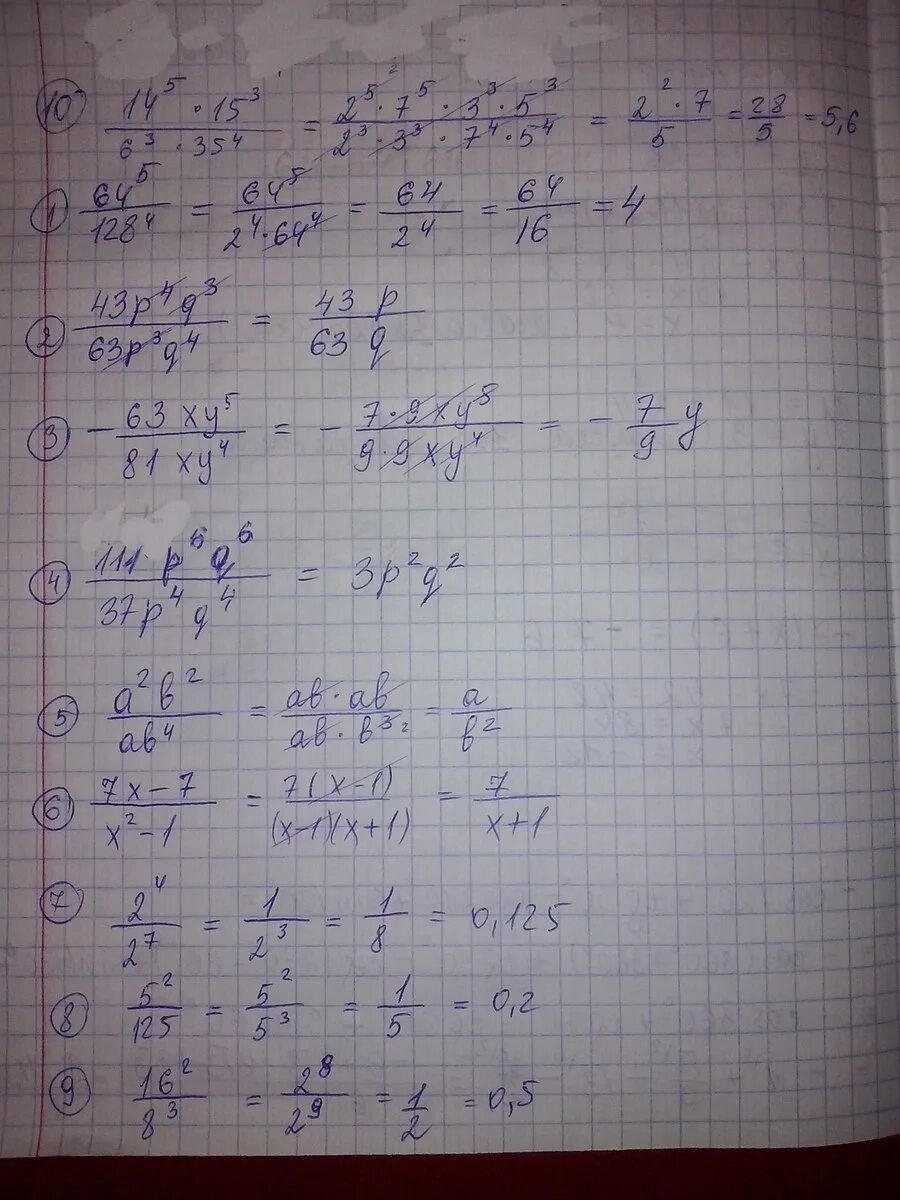 10 14^5 · 15^3 / 6^3 · 35^4 = 2^5 ^2 · 7^5 · 3^3 · 5^3 / 2^3 · 3^3 · 7^4 · 5^4 = 2^2 · 7 / 5 = 28/5 = 5,6
1 64^5 / 128^4 = 64^5 / 2^4 · 64^4 = 64 / 2^4 = 64/16 = 4
2 43p^4 q^3 / 63p^3 q^4 = 43 p / 63 q
3 - 63 xy^5 / 81 xy^4 = - 7 · 9 xy^5 / 9 · 9 xy^4 = - 7/9 y
4 111 p^6 q^6 / 37p^4 q^4 = 3p^2 q^2
5 a^2 b^2 / ab^4 = ab · ab / ab · b^3 2 = a / b^2
6 7x - 7 / x^2 - 1 = 7(x - 1) / (x-1)(x+1) = 7 / x+1
7 2^4 / 2^7 = 1 / 2^3 = 1/8 = 0,125
8 5^2 / 125 = 5^2 / 5^3 = 1/5 = 0,2
9 16^2 / 8^3 = 2^8 / 2^9 = 1/2 = 0,5